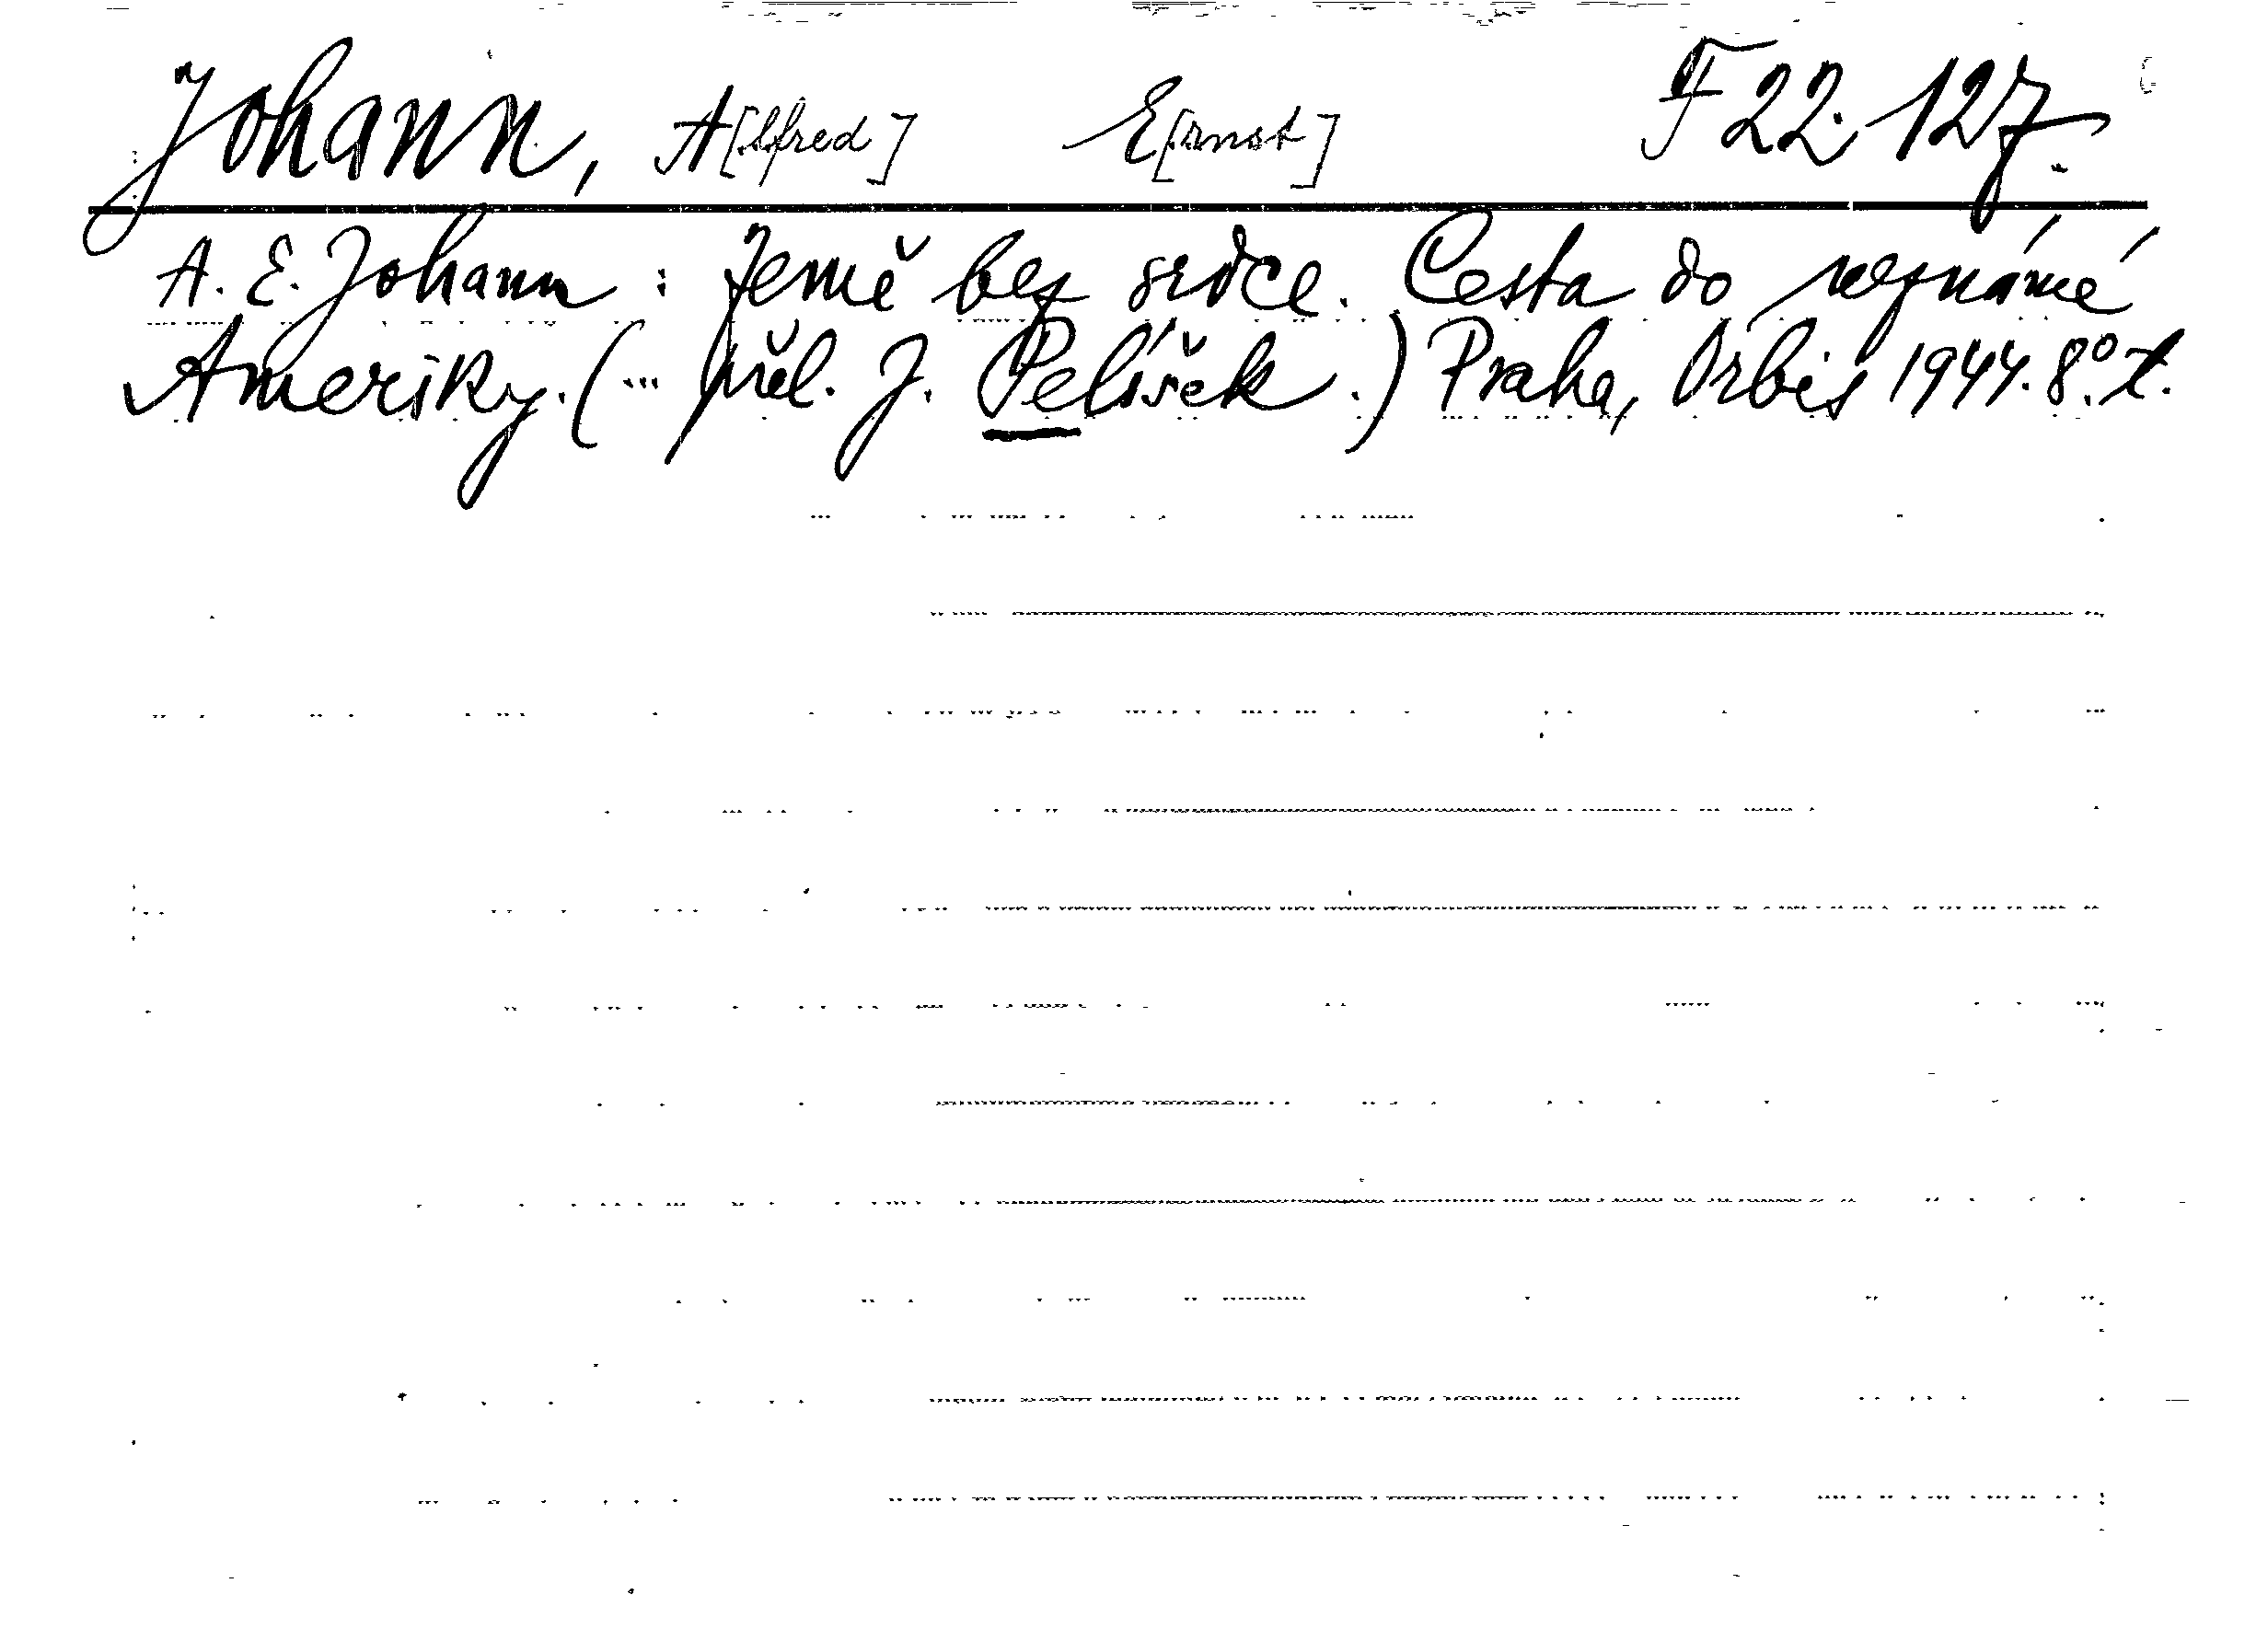 Johann, A[lfred] E[rnst] F 22.127.
A. E. Johann : Země bez srdce. Cesta do neznámé
Ameriky. (... přel. J. Pelíšek.) Praha, Orbis 1944. 8°. t.